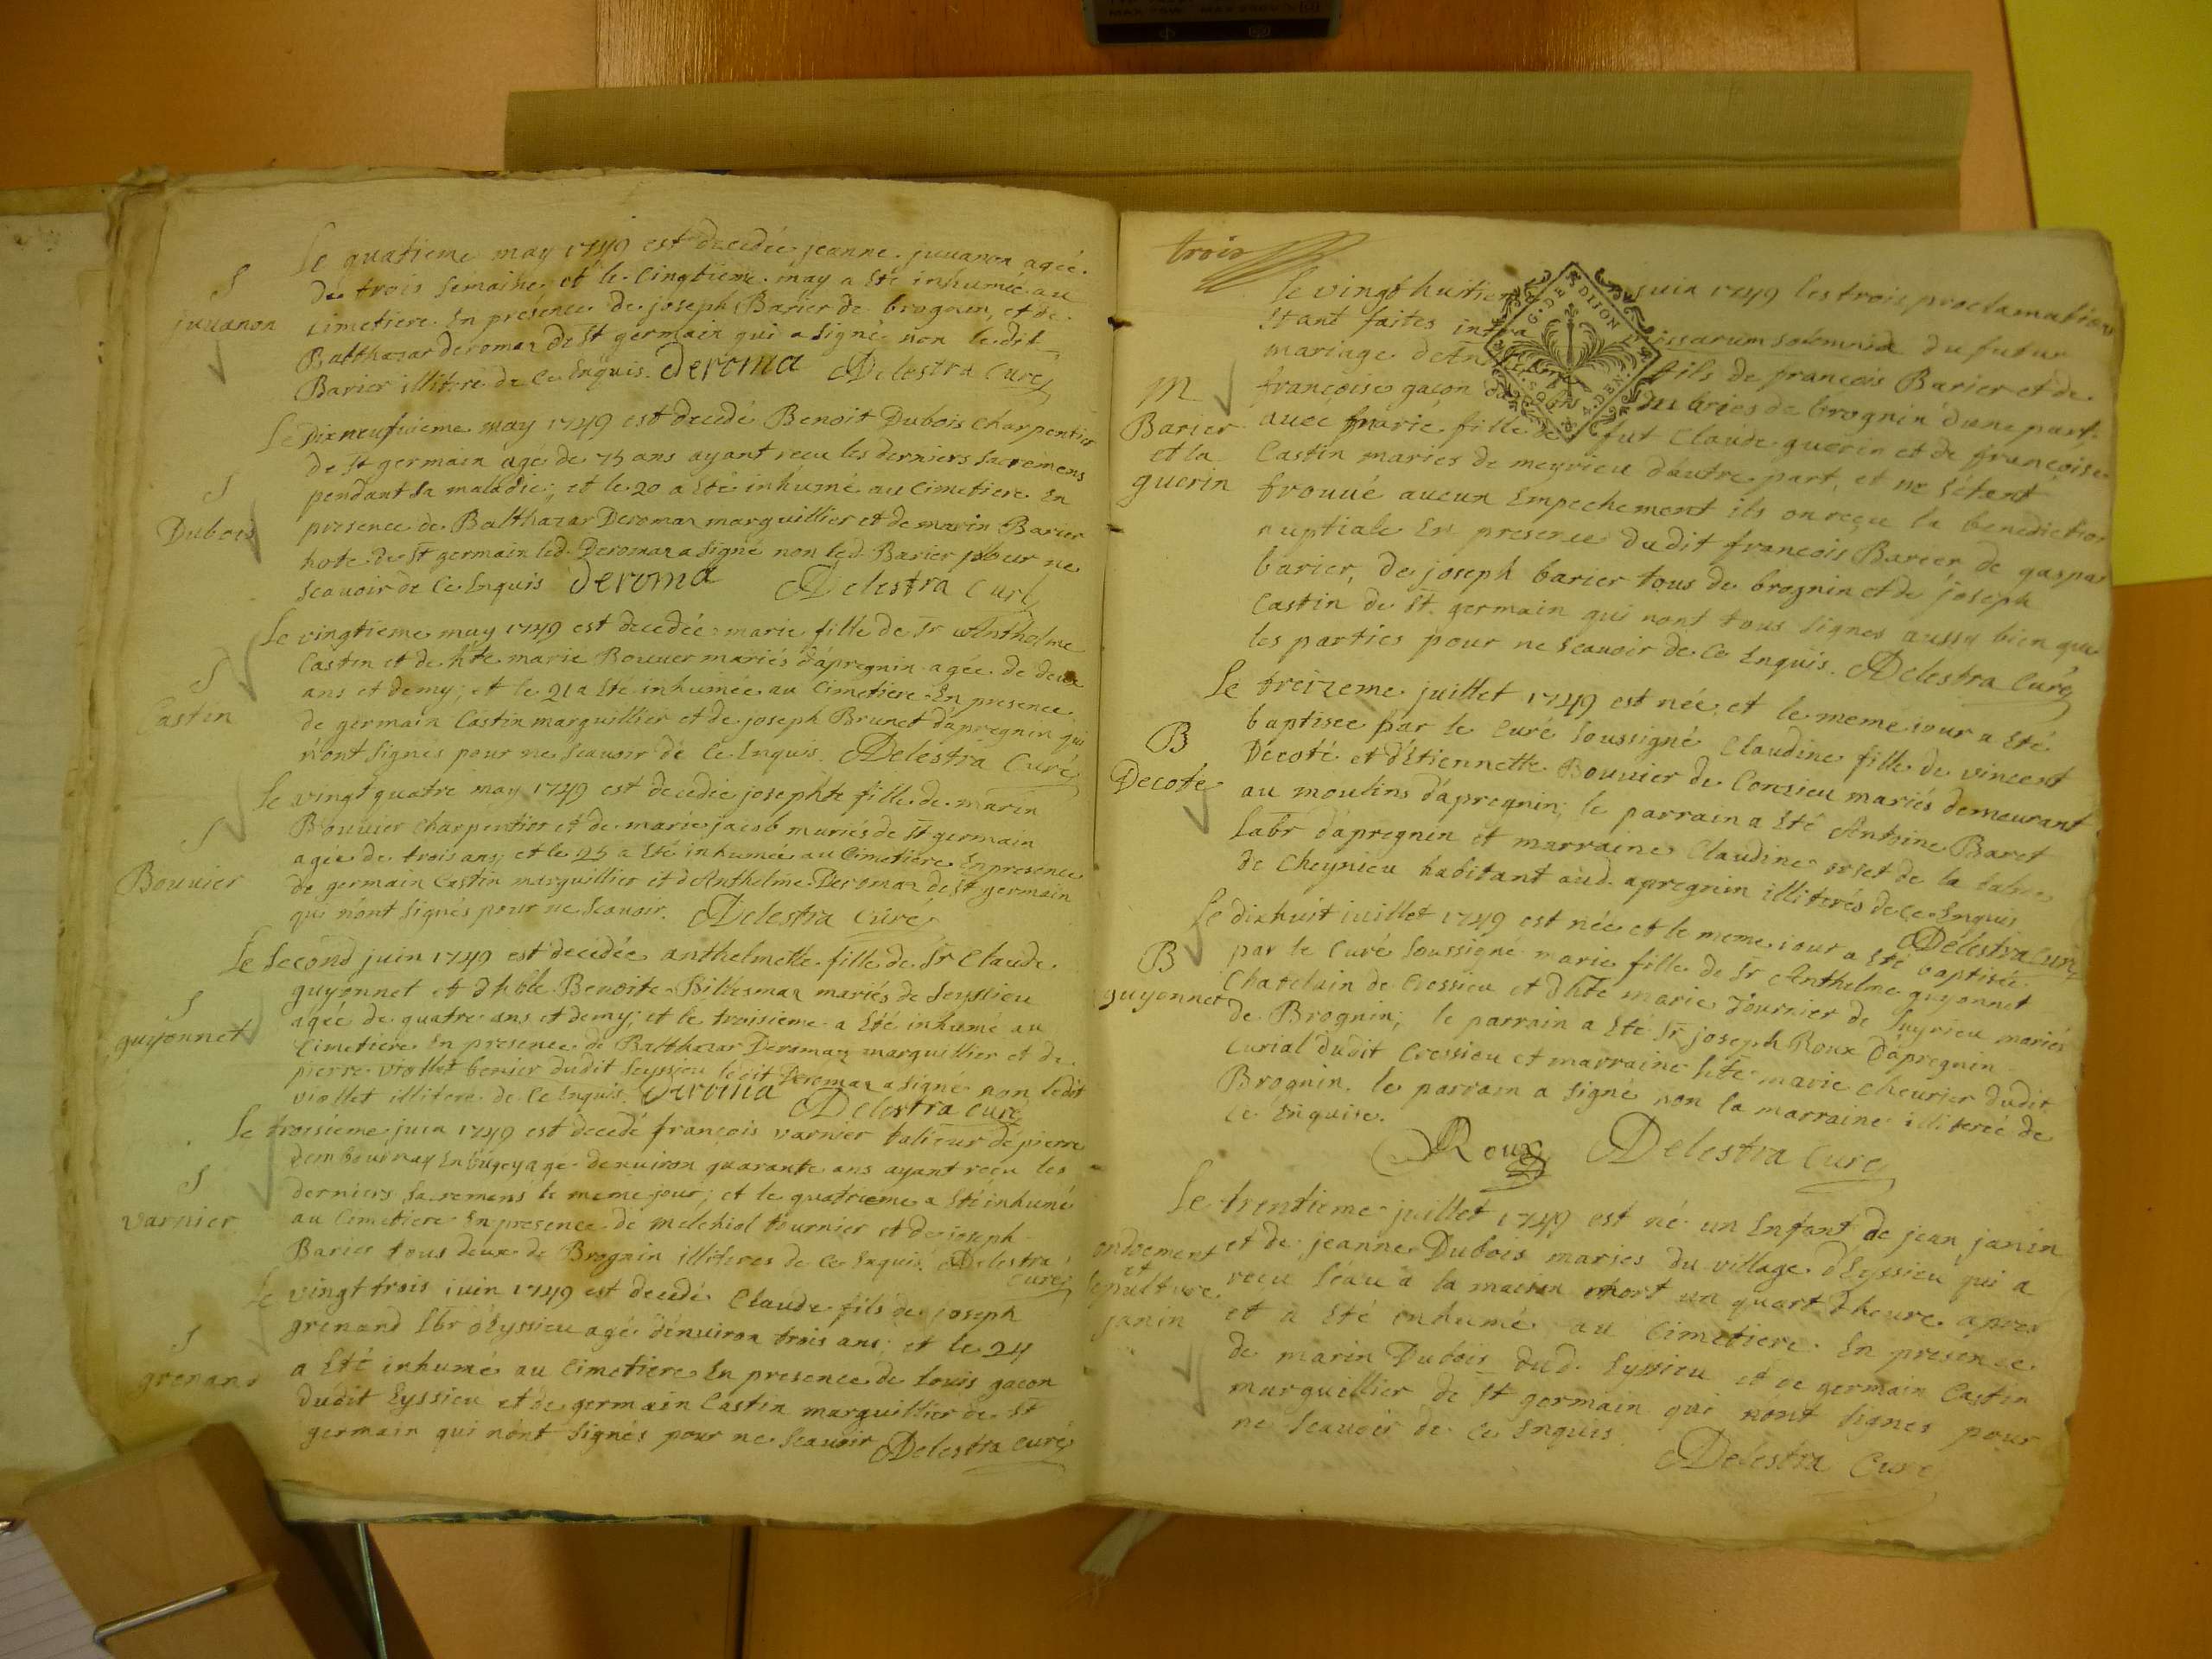 Le quatrieme may 1749 est decedée jeanne juuanon agée
de trois semaines et le cinqtieme may a Eté inhumée au
S
juuanon
cimetiere En présence de joseph Barier de brognin, et de
Balthazar deromaz de St germain qui a signé non ledit
Barier illiteré de ce Enquis. Deroma Delestra Curé
Le dixneufuieme may 1749 est decedé Benoit Dubois charpentier
de St germain agé de 75 ans ayant reçu les derniers sacremens
pendant sa maladie; et le 20 a Eté inhumé au Cimetiere En
S
Dubois
presence de Balthazar Deromaz marguillier et de marin Barier
hote de St germain led. Deromaz a signé non led. Barier pour ne
scauoir de ce Enquis Deroma Delestra Curé
Le vingtieme may 1749 est decedée marie fille de Sr Anthelme
Castin et de hte marie Bouuer mariés d'apregnin agée de deux
S
Castin
ans et demy; et le 21 a Eté inhumée au Cimetiere En presence
de germain Castin marguillier et de joseph Brunet d'apregnin qui
n'ont signés pour ne scauoir de ce Enquis. Delestra Curé
Le vingt quatre may 1749 est decedée josephte fille de marin
Bouuier charpentier et de marie jacob mariés de St germain
S
Bouuier
agée de trois ans; et le 25 a Eté inhumée au Cimetiere En presence
de germain Castin marguillier et d'Anthelme Deromaz de St germain
qui n'ont signés pour ne scauoir. Delestra Curé
Le second juin 1749 est decedée anthelmette fille de Sr Claude
guyonnet et d'hble Benoite mariés de Seyssieu
S
guyonnet
agée de quatre ans et demy; et le troisieme a Eté inhumé au
Cimetiere En presence de Balthazar Deromaz marguillier et de
pierre viollet dudit Seyssieu ledit Deromaz a signé non ledit
viollet illiteré de ce Enquis. Deroma Delestra Curé
Le troisième juin 1749 est decedé françois varnier tailieur de pierre
En bugey agé denuiron quarante ans ayant reçu les
S
varnier
derniers sacremens le meme jour; et le quatrieme a Eté inhumé
au Cimetiere En presence de melchiol tournier et de joseph
Barier tous deux de Brognin illiteres de ce Enquis. Delestra
Curé
Le vingt trois juin 1749 est decedé Claude fils de joseph
S
grenand
grenand lbr d'Eyssieu agé d'enuiron trois ans; et le 24
a Eté inhumé au Cimetiere En presence de louis gacon
dudit Eyssieu et de germain Castin marguillier de St
germain qui n'ont signés pour ne scauoir Delestra Curé
trois
G. DE DIJON
Le vingt huitieme juin 1749 les trois proclamations
Etant faites intra missarum solemnia du futur
mariage fils de françois Barier et de
M
Barier
et la
guerin
françoise gacon mariés de brognin d'une part
avec marie fille de fut Claude guerin et de françoise
Castin mariés de meyrieu d'autre part, et ne s'étant
trouué aucun Empechement ils on reçu la benediction
nuptiale En presence dudit françois Barier, de gaspar
barier, de joseph barier tous de brognin et de joseph
Castin de St germain qui n'ont tous signes aussy bien que
les parties pour ne scauoir de ce Enquis. Delestra Curé
Le treizeme juillet 1749 est née et le meme iour a Eté
B
Decote
baptisee par le Curé soussigné Claudine fille de vincent
Décoté et d'Etiennette Bouuier de Conzieu mariés demeurant
au moulins d'apregnin; le parrain a Eté Antoine Baret
labr d'apregnin et marraine Claudine orset de la balme
de Cheynieu habitant aud. apregnin illiterés de ce Enquis
Delestra Curé
Le dixhuit iuillet 1749 est née et le meme iour a Eté baptisée
B
guyonnet
par le Curé soussigné marie fille de Sr Anthelme guyonnet
Chatelain de Cressieu et d'hte marie Tournier de Luyrieu mariés
de Brognin; le parrain a Eté Sr joseph Roux d'apregnin
Curial dudit Cressieu et marraine hte marie cheurier dudit
Brognin. le parrain a signé non la marraine illiterée de
ce Enquise.
Roux Delestra Curé
Le trentieme juillet 1749 est né un Enfant de jean janin
ondoiement
et
sepulture
janin
et de jeanne Dubois mariés du village d'Eyssieu qui a
reçu l'eau a la maison mort un quart d'heure apres
et a Eté inhumé au Cimetiere En presence
de marin Dubois dud. Eyssieu et de germain Castin
marguillier de St germain qui n'ont signes pour
ne scauoir de ce Enquis
Delestra Curé